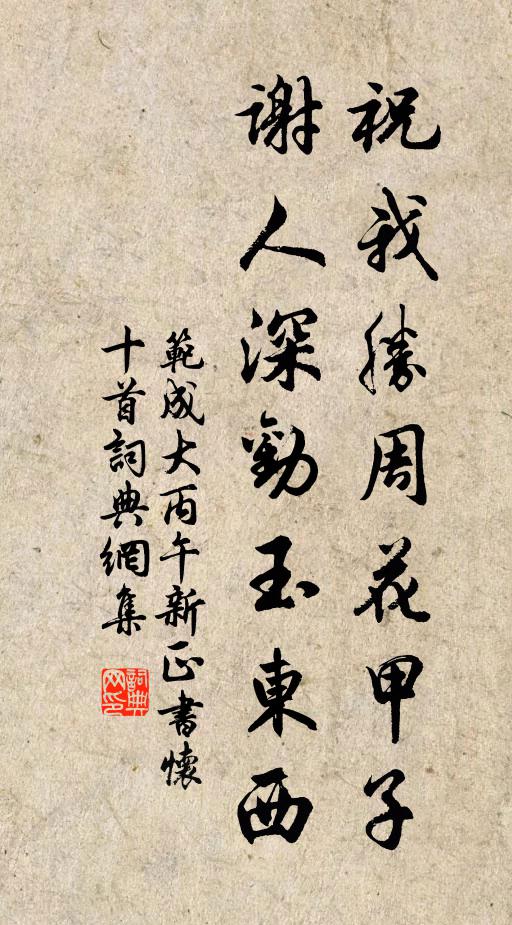 祝我勝周花甲子
謝人深勸玉東西
範成大丙午新正書懷
十首詞典網集
詞典網印